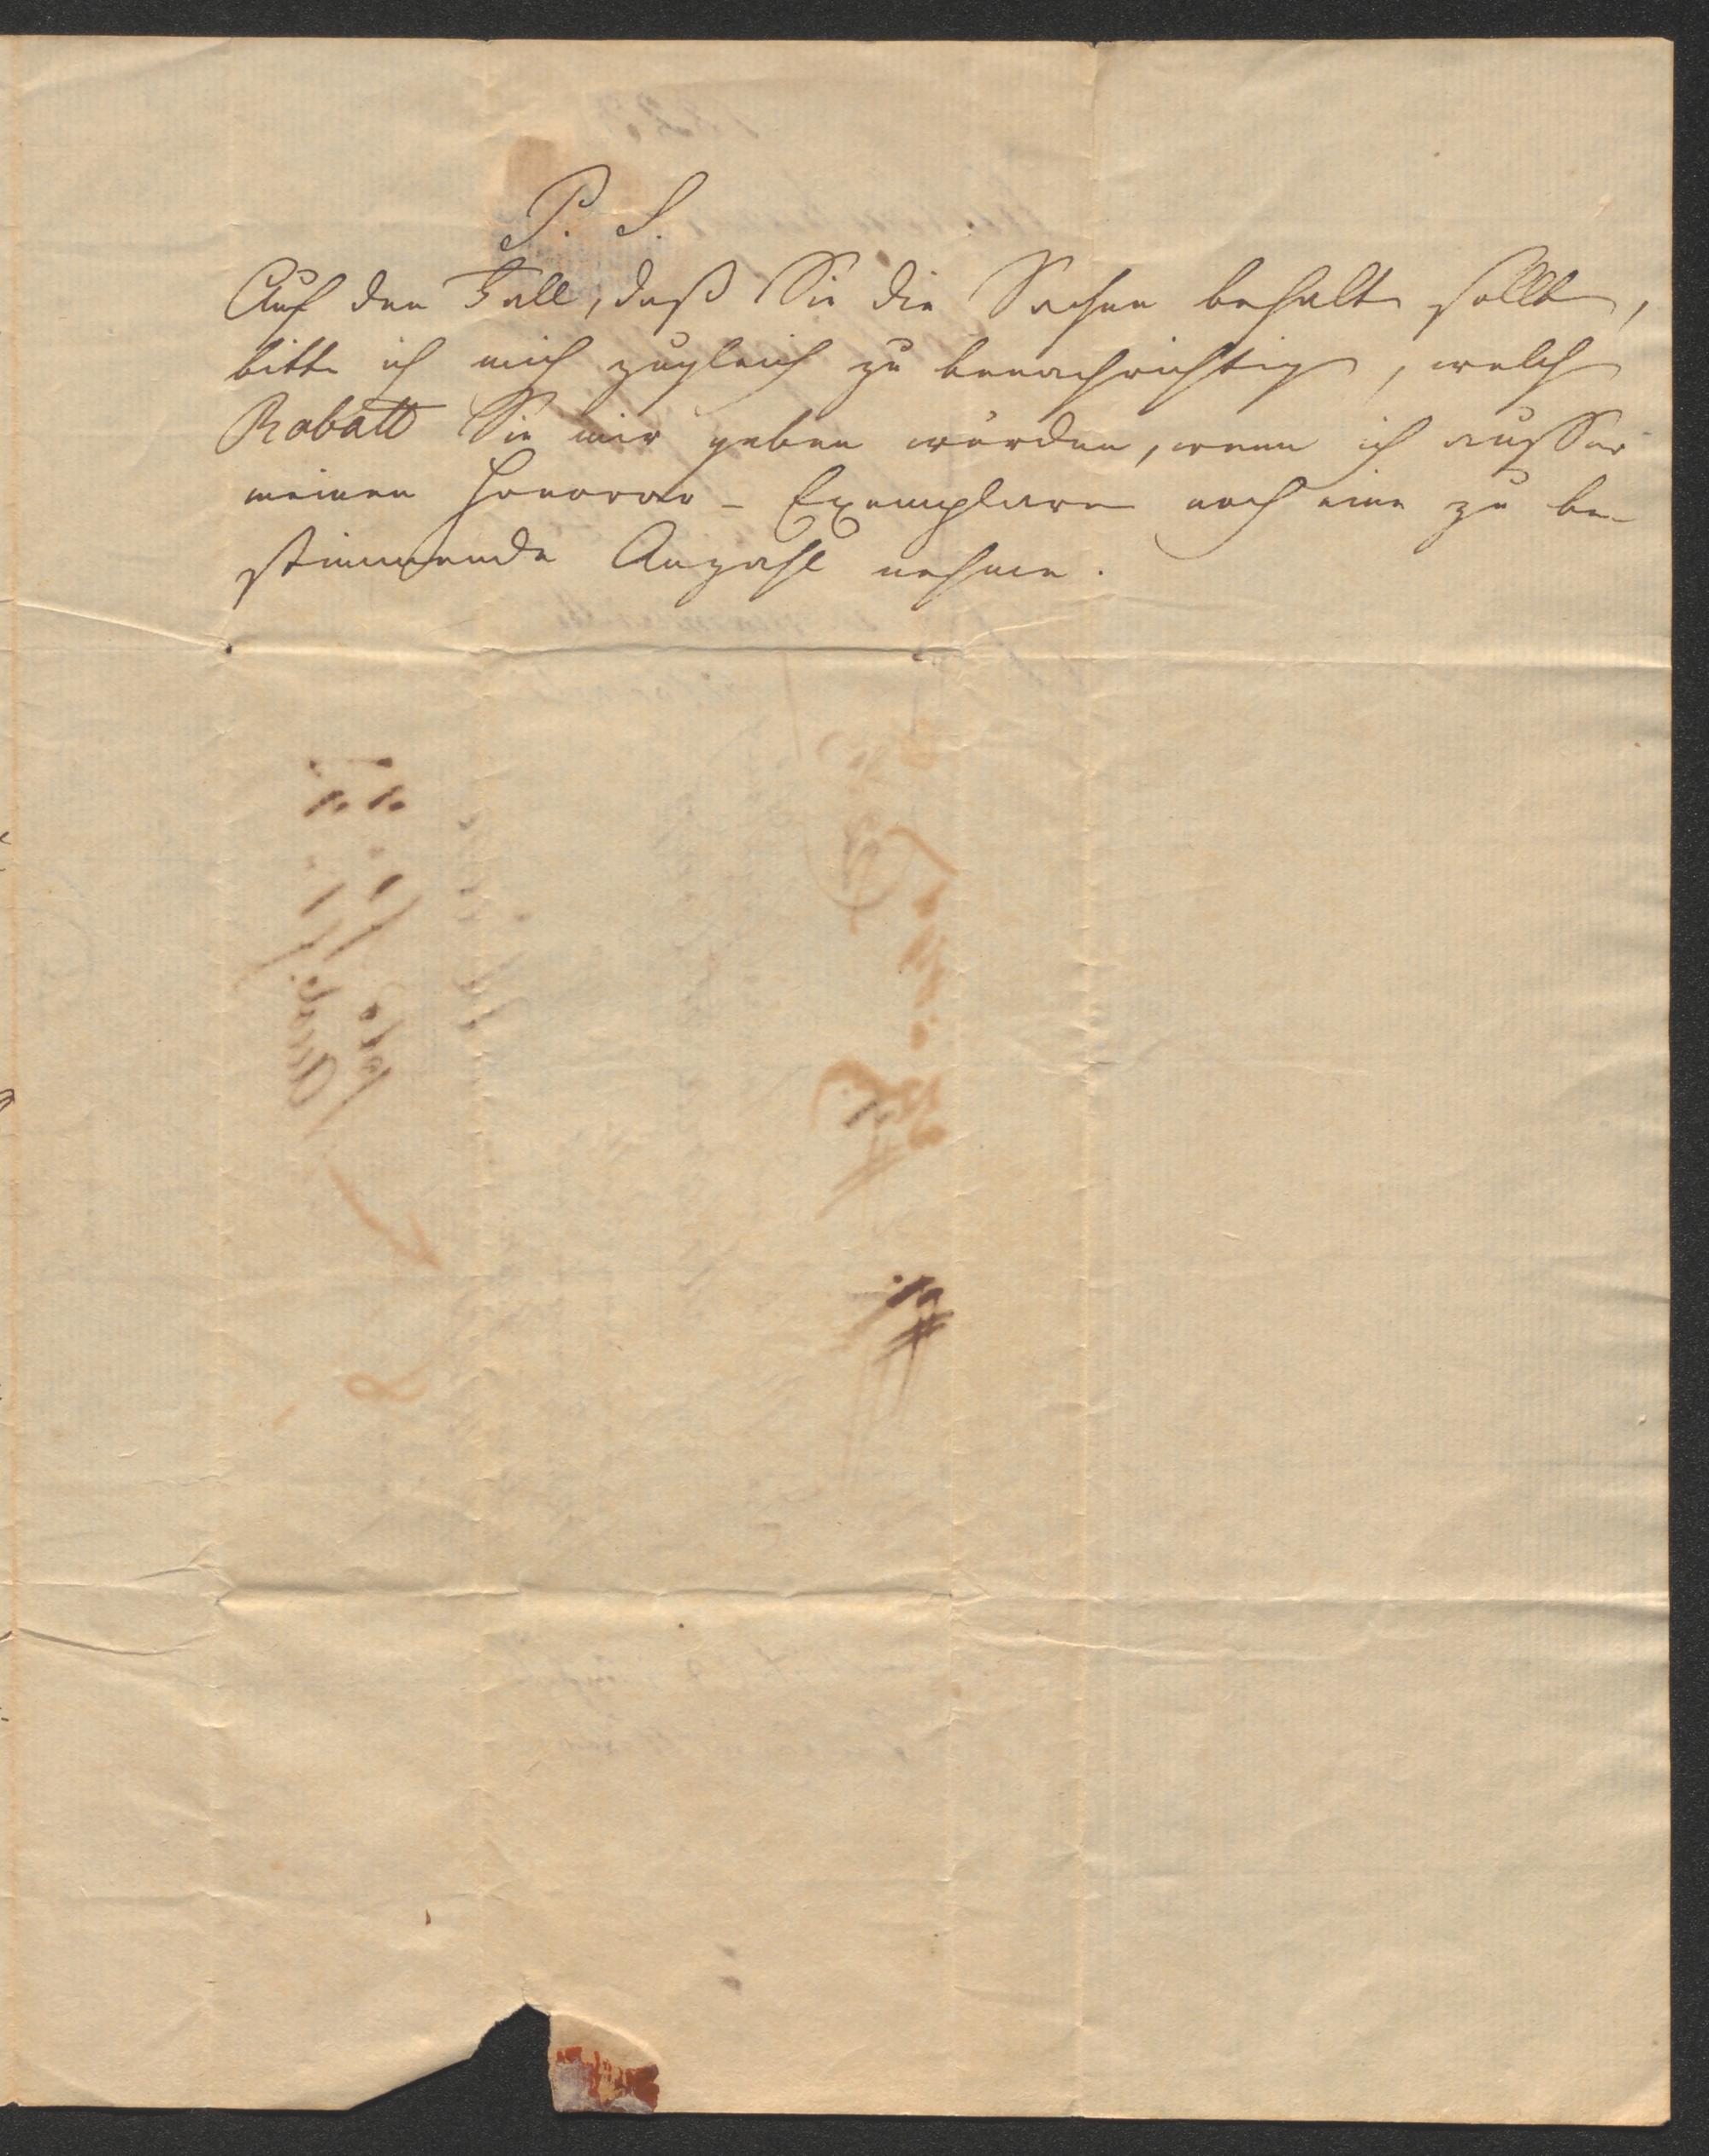 P. S.
Auf den Fall, daß Sie die Sachen behalten sollten,
bitte ich mich zugleich zu benachrichtigen, welchen
Rabatt Sie mir geben würden, wenn ich ausser
meinen Honorar-Exemplaren noch eine zu be-
stimmende Anzahl nehme.